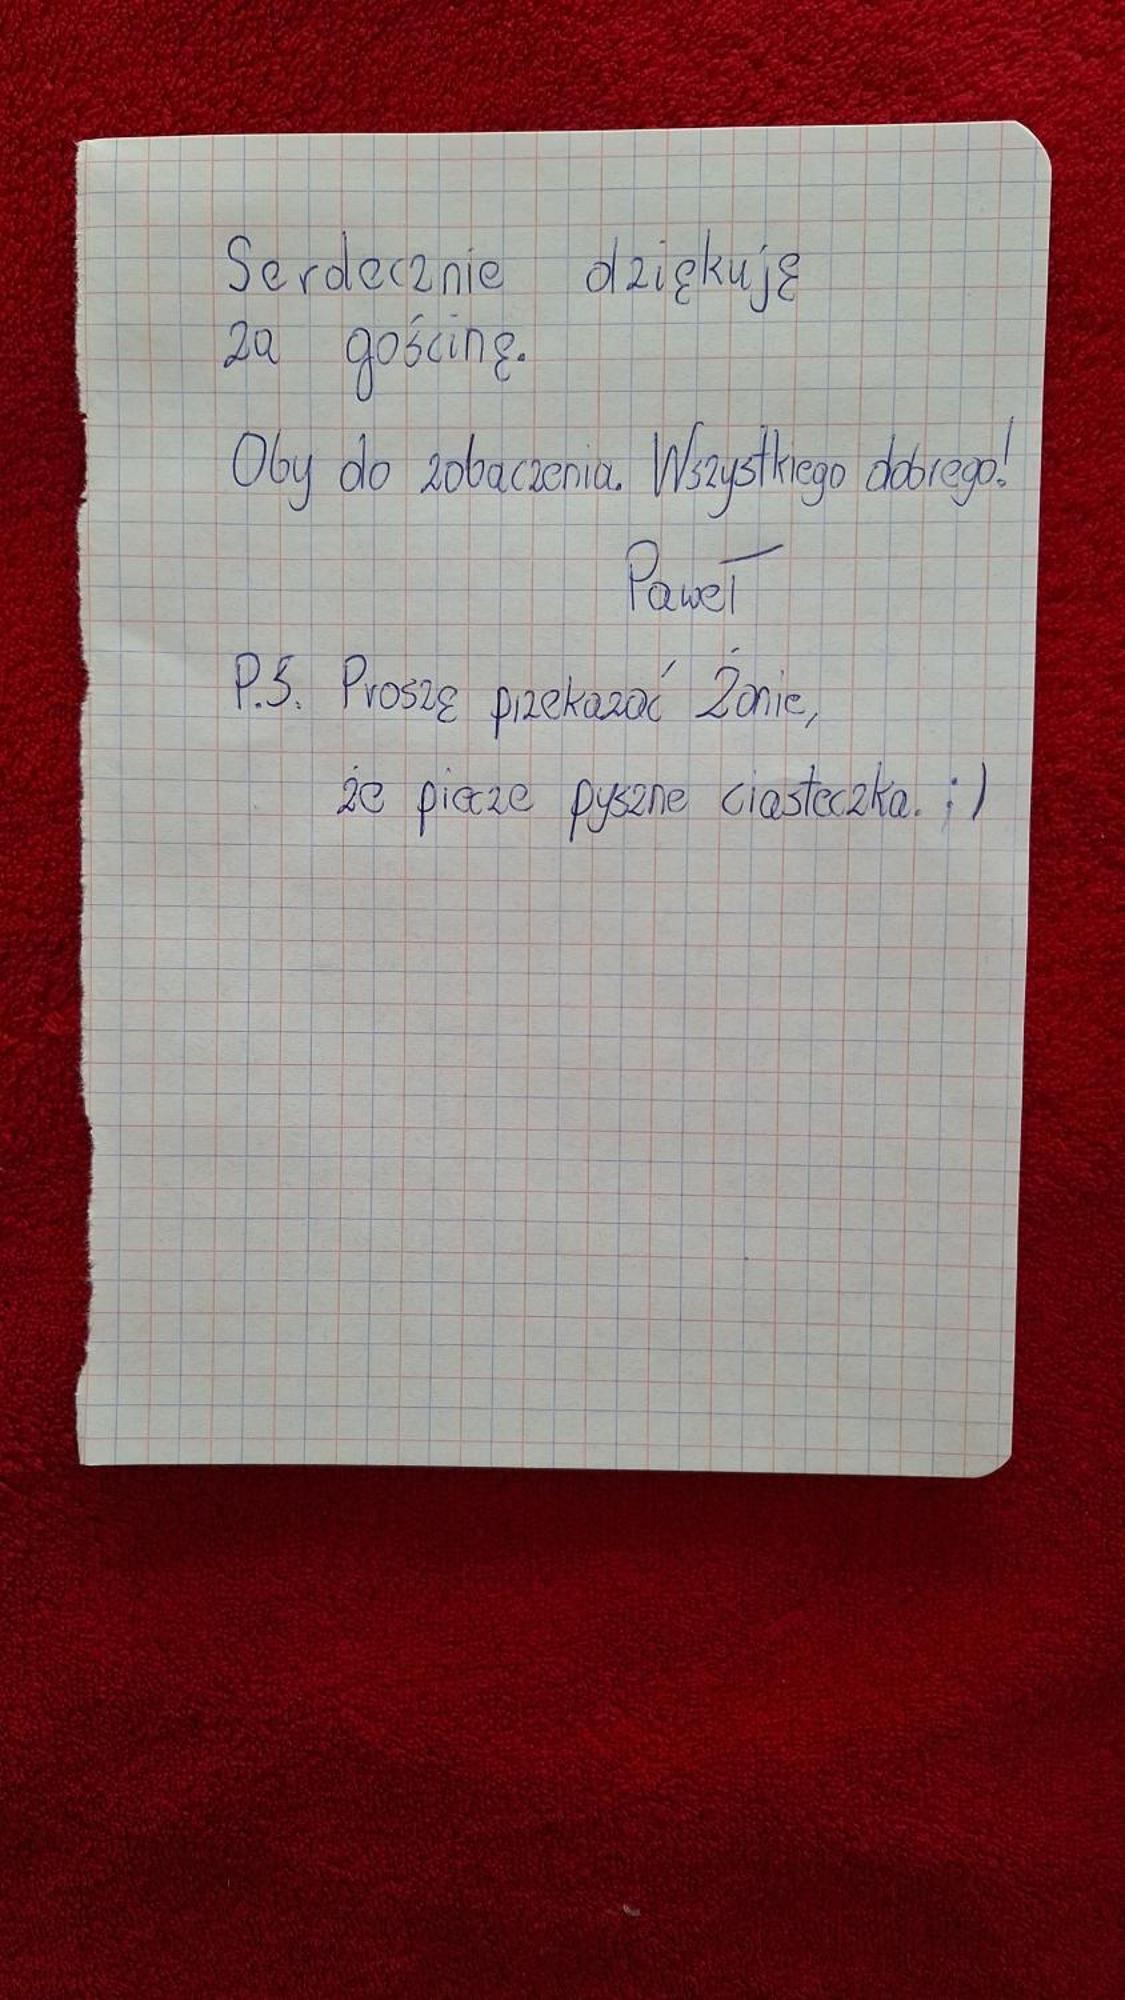 Serdecznie dziękuję
za gościnę.
Oby do zobaczenia. Wszystkiego dobrego!
Paweł
P.S. Proszę przekazać Żanie,
że piecze pyszne ciasteczka. ;)